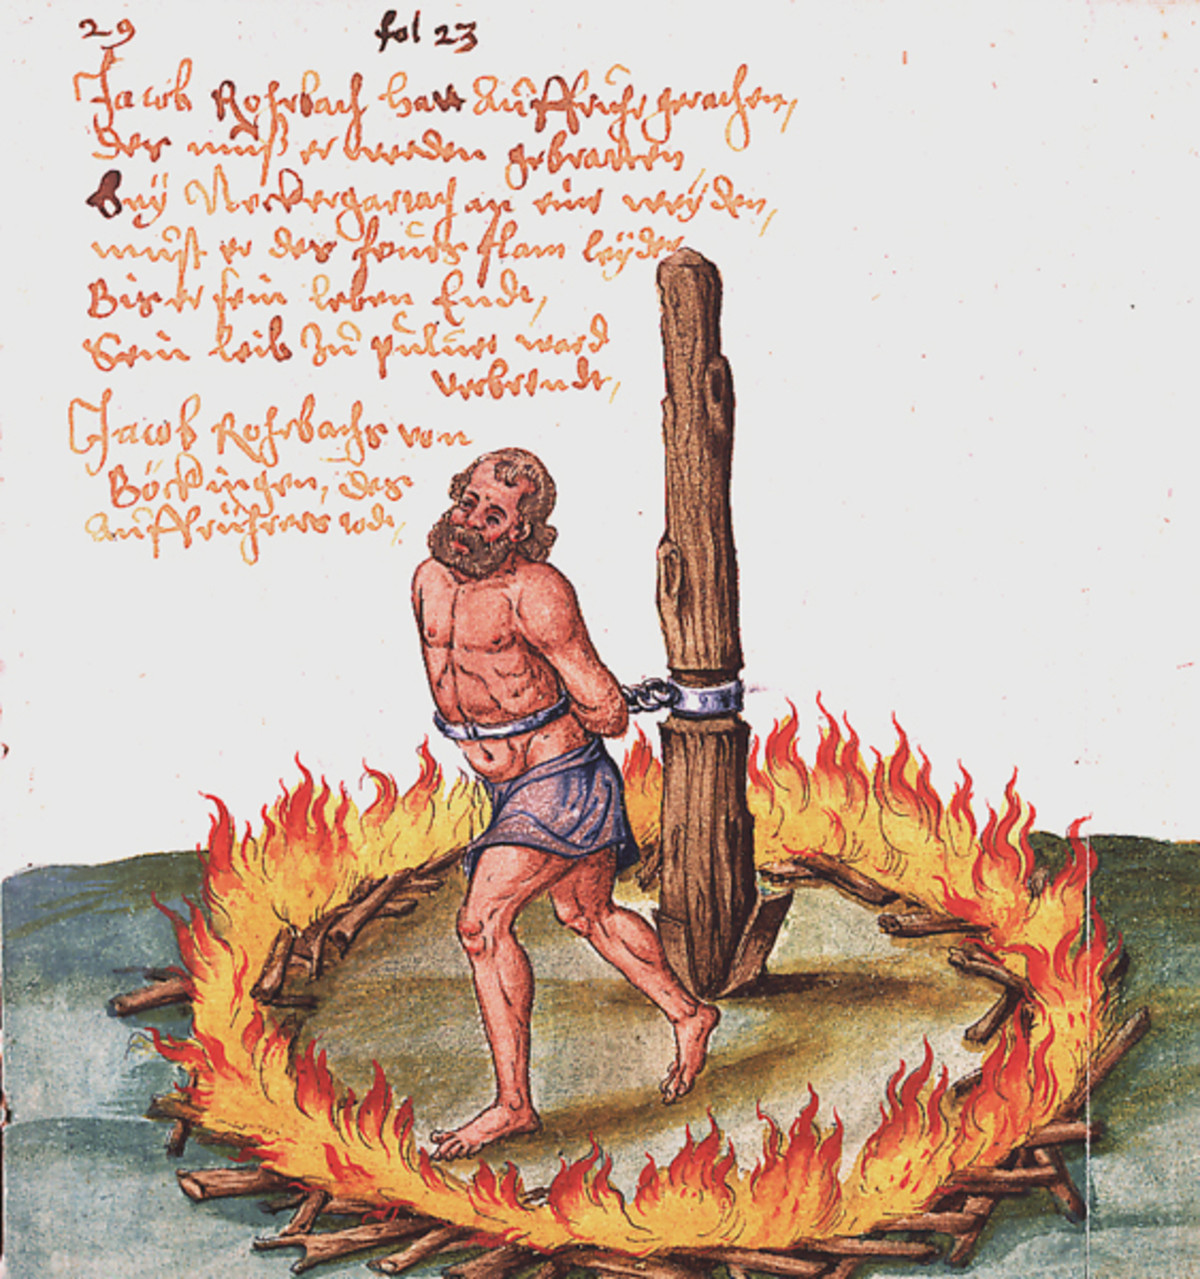 29
fol 23
Jacob Rohrbach hatt Auffruhr gerathen,
Des muß er werden gebratten,
Beÿ Neckergartach an eine weÿden,
must er des feurs flam leÿden
Bis er sein leben Ende,
Sein leib zu puluer ward
verbrendt,
Jacob Rohrbachs von
Böckingen, des
Auffrührers tod,